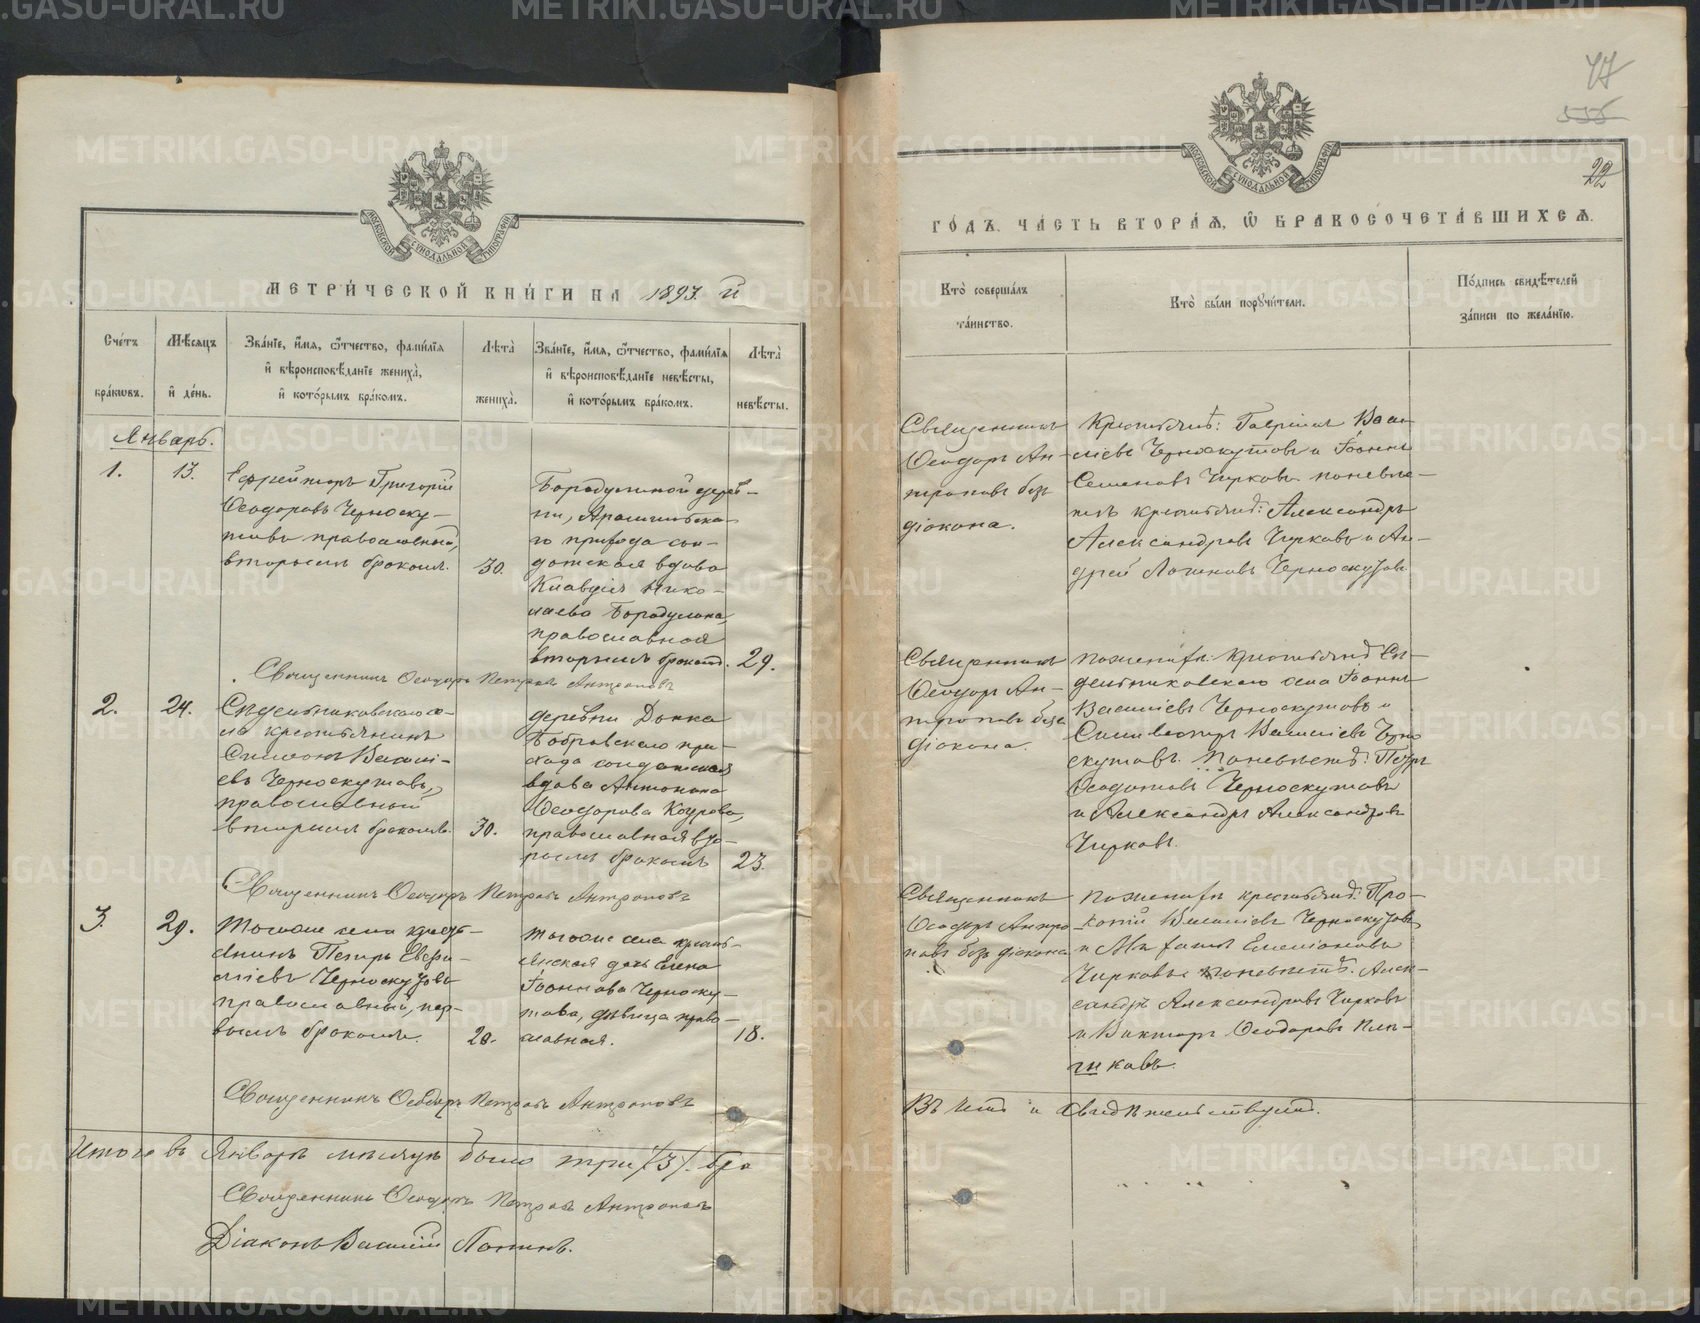 МЕТРИ́ЧЕСКОЙ КНИ́ГИ НА 1893. й
Сче́тъ бра́кωвъ.
Мѣ́сяцъ и҆ де́нь.
Зва́нїе, и҆́мя, ѻ҆́тчество, фами́лїя и҆ вѣроисповѣ́данїе жениха̀, и҆ кото́рымъ бра́комъ.
Лѣта̀ жениха̀.
Зва́нїе, и҆́мя, ѻ҆́тчество, фами́лїя и҆ вѣроисповѣ́данїе невѣ́сты, и҆ кото́рымъ бра́комъ.
Лѣта̀ невѣ́сты.
Январь.
1.
13.
Ефрейторъ Григорій
Ѳеодоровъ Черноску-
товъ православный,
вторымъ бракомъ.
30.
Бородулиной дерев-
ни, Арамильска-
го прихода сол-
датская вдова
Клавдія Нико-
лаева Бородулина,
православная
вторымъ бракомъ.
29.
Священникъ Ѳеодоръ Петровъ Антроповъ
2.
24.
Сѣдельниковскаго се-
ла крестьянинъ
Симеонъ Василі-
евъ Черноскутовъ,
православный
вторымъ бракомъ.
30.
деревни
Бобровскаго при-
хода солдатская
вдова Антонина
Ѳеодорова
православная вто-
рымъ бракомъ
23.
Священникъ Ѳеодоръ Петровъ Антроповъ
3.
29.
Тогоже села кресть-
янинъ Петръ Евфи-
міевъ Черноскутовъ
православный, пер-
вымъ бракомъ.
20.
тогоже села кресть-
янская дочь Елена
Іоаннова Черноску-
това, дѣвица право-
славная.
18.
Священникъ Ѳеодоръ Петровъ Антроповъ
Итого въ Январѣ мѣсяцѣ было три /3/. бра
Священникъ Ѳеодоръ Петровъ Антроповъ
Діаконъ Василій
77
556
22
ГО́ДЪ. ЧА́СТЬ ВТОРА́Я, Ѡ҆ БРАКОСОЧЕТА́ВШИХСЯ.
Кто̀ соверша́лъ та́инство.
Кто̀ бы́ли порꙋчи́тели.
По́дпись свидѣ́телей за́писи по жела́нїю.
Священникъ
Ѳеодоръ Ан-
троповъ безъ
діакона.
Крестьяне: Гавріилъ Васи-
ліевъ Черноскутовъ и Іоаннъ
Семеновъ Чирковъ. по невѣс-
тѣ крестьяне: Александръ
Александровъ Чирковъ и Ан-
дрей Логиновъ Черноскутовъ
Священникъ
Ѳеодоръ Ан-
троповъ безъ
діакона.
По женихѣ: крестьяне Сѣ-
дельниковскаго села Іоаннъ
Василіевъ Черноскутовъ и
Василіевъ Черно
скутовъ. По невѣстѣ: Петръ
Ѳеодотовъ Черноскутовъ
и Александръ Александровъ
Чирковъ.
Священникъ
Ѳеодоръ Антро
повъ безъ діакона
По женихѣ крестьяне: Про-
копій Василіевъ Черноскутовъ
и Емеліановъ
Чирковъ. по невѣстѣ: Алек-
сандръ Александровъ Чирковъ
и Викторъ Ѳеодоровъ
ковъ.
свидѣтельствуетъ.
МОСКОВСКОЙ СѴНОДАЛЬНОЙ ТИПОГРАФІИ
METRIKI.GASO-URAL.RU